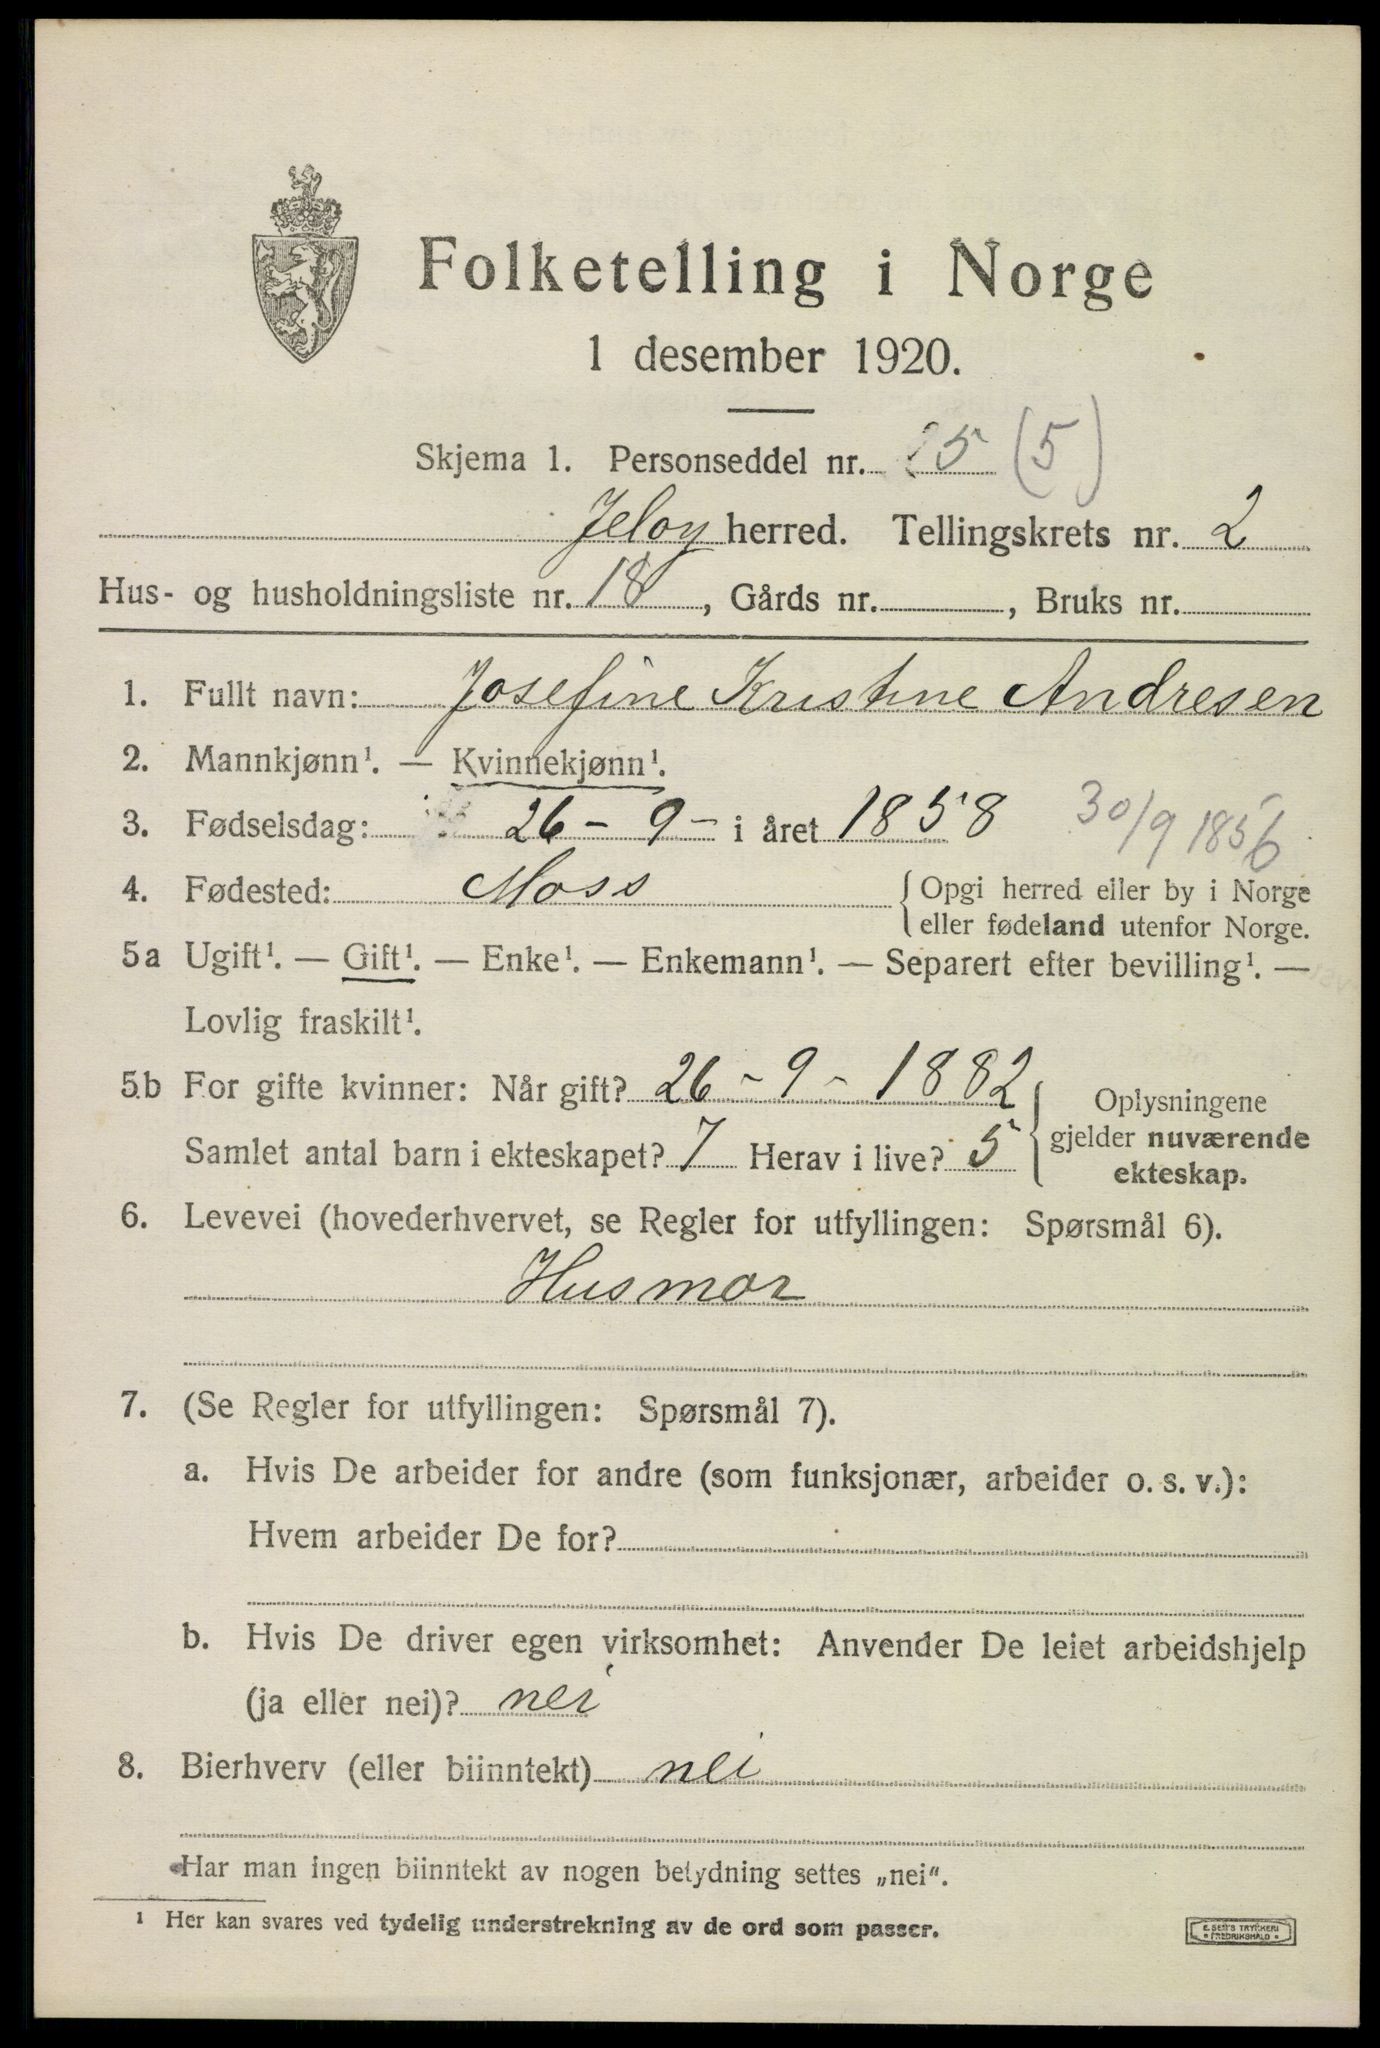 Folketelling i Norge
1 desember 1920.
Skjema 1. Personseddel nr. 5 (5)
Jeløy herred. Tellingskrets nr. 2
Hus- og husholdningsliste nr. 18, Gårds nr. , Bruks nr.
1. Fullt navn: Josefine Kristine Andresen
2. Mannkjønn¹. — Kvinnekjønn¹.
3. Fødselsdag: 26 - 9 - i året 1858 30/9 1856
4. Fødested: Moss { Opgi herred eller by i Norge
eller fødeland utenfor Norge.
5a Ugift¹. — Gift¹. — Enke¹. — Enkemann¹. — Separert efter bevilling¹. —
Lovlig fraskilt¹.
5b For gifte kvinner: Når gift? 26 - 9 - 1882 { Oplysningene
Samlet antal barn i ekteskapet? 7 Herav i live? 5 gjelder nuværende
ekteskap.
6. Levevei (hovederhvervet, se Regler for utfyllingen: Spørsmål 6).
Husmor
7. (Se Regler for utfyllingen: Spørsmål 7).
a. Hvis De arbeider for andre (som funksjonær, arbeider o. s. v.):
Hvem arbeider De for?
b. Hvis De driver egen virksomhet: Anvender De leiet arbeidshjelp
(ja eller nei)? nei
8. Bierhverv (eller biinntekt) nei
Har man ingen biinntekt av nogen betydning settes „nei“.
¹ Her kan svares ved tydelig understrekning av de ord som passer.
E. SEM'S TRYKKERI
* FREDRIKSHALD *